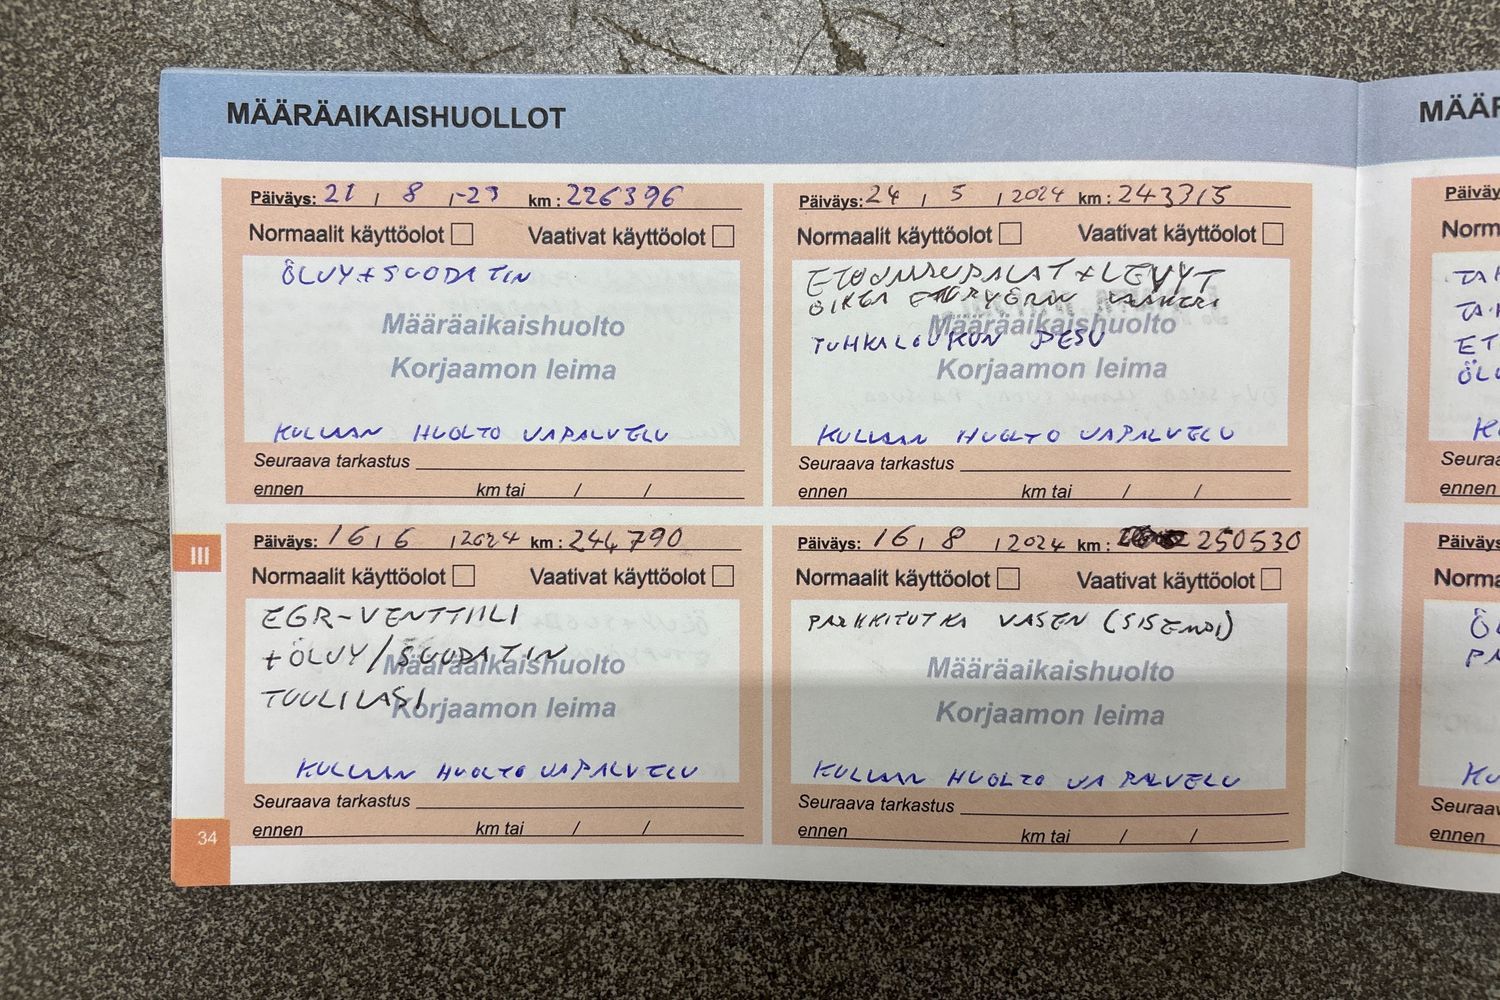 MÄÄRÄAIKAISHUOLLOT
Päiväys: 21 / 8 /-23 km: 226396
Normaalit käyttöolot Vaativat käyttöolot
ÖLJY+SUODATIN
Määräaikaishuolto
Korjaamon leima
KULLAAN HUOLTO JA PALVELU
Seuraava tarkastus
ennen km tai / /
Päiväys: 24 / 5 / 2024 km: 243315
Normaalit käyttöolot Vaativat käyttöolot
ETUJARRUPALAT+LEVYT
OIKEA ETUPYÖRÄN LAAKERI
Määräaikaishuolto
TUHKALUUKUN PESU
Korjaamon leima
KULLAAN HUOLTO JA PALVELU
Seuraava tarkastus
ennen km tai / /
III
Päiväys: 16 / 6 / 2024 km: 244790
Normaalit käyttöolot Vaativat käyttöolot
EGR-VENTTIILI
+ÖLJY/SUODATIN
Määräaikaishuolto
TUULILASI
Korjaamon leima
KULLAAN HUOLTO JA PALVELU
Seuraava tarkastus
ennen km tai / /
Päiväys: 16 / 8 / 2024 km: 250530
Normaalit käyttöolot Vaativat käyttöolot
PARKKITUTKA VASEN (SISEMPI)
Määräaikaishuolto
Korjaamon leima
KULLAAN HUOLTO JA PALVELU
Seuraava tarkastus
ennen km tai / /
34